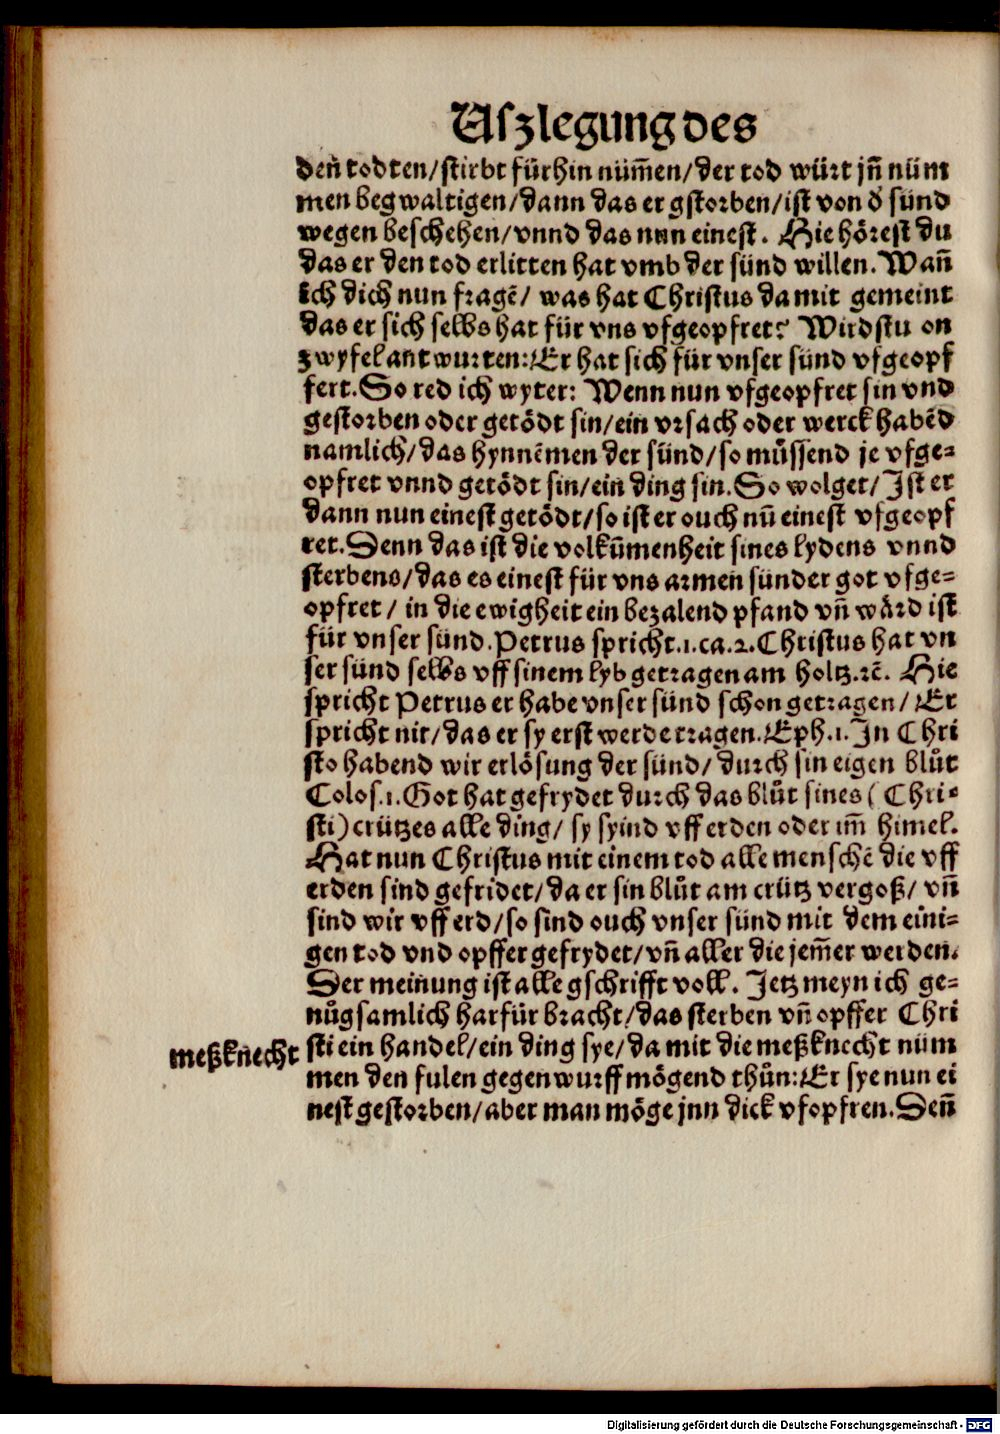 Uſzlegung des
den̄ todten/ſtirbt fürhin nüm̄en/der tod würt jn̄ nüm
men begwaltigen/dann das er gſtorben/iſt von d' ſünd
wegen beſchehen/vnnd das nun eineſt. Hie höreſt du
das er den tod erlitten hat vmb der ſünd willen. Wañ
ich dich nun fragē/ was hat Chriſtus da mit gemeint
das er ſich ſelbs hat für vns vfgeopfret? Wirdſtu on
zwyfel antwurten: Er hat ſich für vnſer ſünd vfgeopf
fert. So red ich wyter: Wenn nun vfgeopfret ſin vnd
geſtorben oder getödt ſin/ein vrſach oder werck habēd
namlich/das hynnēmen der ſünd/ſo müſſend je vfge⸗
opfret vnnd getödt ſin/ein ding ſin. So volget/ Iſt er
dann nun eineſt getödt/ſo iſt er ouch nū eineſt vfgeopf
ret. Denn das iſt die volkūmenheit ſines lydens vnnd
ſterbens/das es eineſt für vns armen ſünder got vfge⸗
opfret/ in die ewigheit ein bezalend pfand vn̄ wärd iſt
für vnſer ſünd. Petrus ſpricht.1.ca.2. Chriſtus hat vn
ſer ſünd ſelbs vff ſinem lyb getragen am holtz.ꝛc̄. Hie
ſpricht Petrus er habe vnſer ſünd ſchon getragen/ Er
ſpricht nit/das er ſy erſt werde tragen. Eph.1. In Chri
ſto habend wir erlöſung der ſünd/ durch ſin eigen blůt
Coloſ.1. Got hat gefrydet durch das blůt ſines (Chri⸗
ſti) crützes alle ding/ ſy ſyind vff erden oder im̄ himel.
Hat nun Chriſtus mit einem tod alle menſchē die vff
erden ſind gefridet/da er ſin blůt am crütz vergoß/ vn̄
ſind wir vff erd/ſo ſind ouch vnſer ſünd mit dem eini⸗
gen tod vnd opffer gefrydet/vn̄ aller die jem̄er werden.
Der meinung iſt alle gſchrifft voll. Jetz meyn ich ge⸗
nůgſamlich harfür bracht/das ſterben vn̄ opffer Chri
meßknecht ſti ein handel/ein ding ſye/da mit die meßknecht nüm
men den fulen gegenwurff mögend thůn: Er ſye nun ei
neſt geſtorben/aber man möge jnn dick vfopfren. Den̄
Digitalisierung gefördert durch die Deutsche Forschungsgemeinschaft - DFG